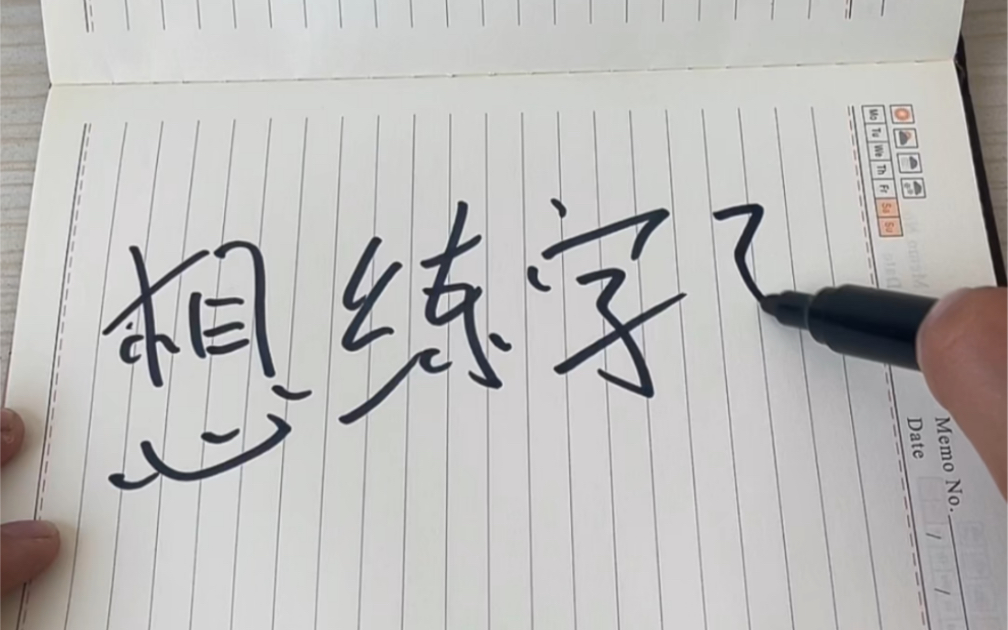 想练字了
Mo Tu We Th Fr Sa Su
Memo No.
Date / /